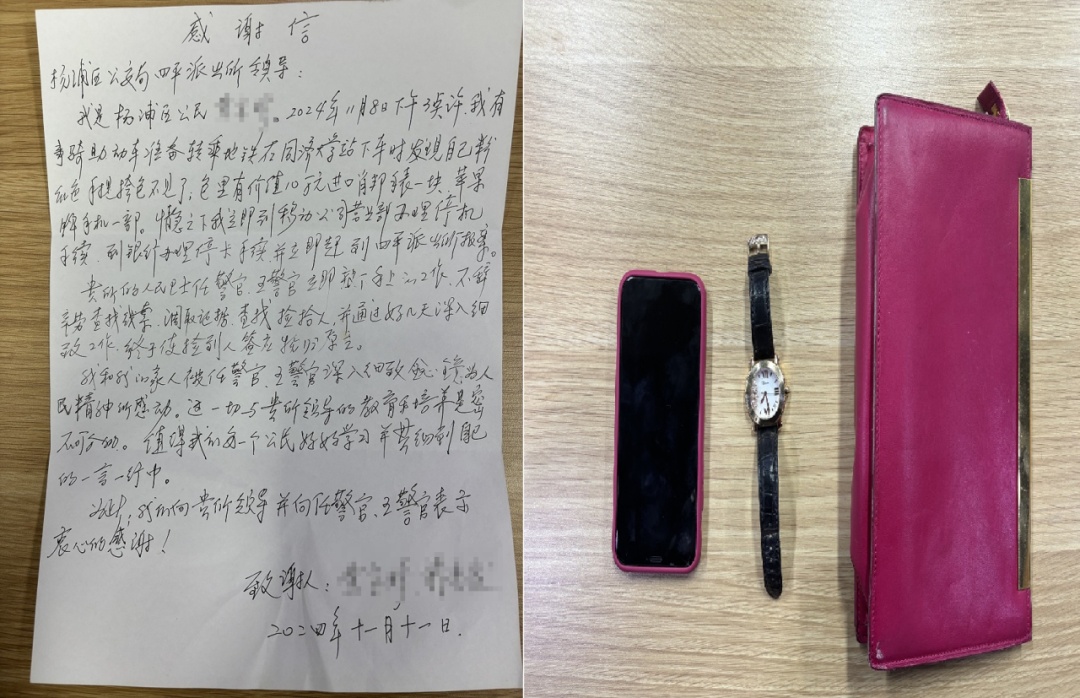 感谢信
杨浦区公安局四平派出所领导：
我是杨浦区公民。2024年11月8日下午3点许，我有
事骑助动车准备转乘地铁，在同济大学站下车时发现自己粉
红色手提挎包不见了，包里有价值10万元进口肖邦表一块、苹果
牌手机一部。之下我立即到移动公司营业部办理停机
手续、到银行办理停卡手续并立即赶到四平派出所报案。
贵所的人民卫士任警官、王警官立即手上的工作，不辞
辛劳查找线索、调取证据、查找捡拾人，并通过好几天深入细
致工作，终于使捡到人答应物归原主。
我和我的家人被任警官、王警官深入细致、为人
民精神所感动。这一切与贵所领导的教育和培养是密
不可分的。值得我们每一个公民好好学习并到自己
的一言一行中。
为此，我们向贵所领导并向任警官、王警官表示
衷心的感谢！
致谢人：
二〇二四年十一月十一日.